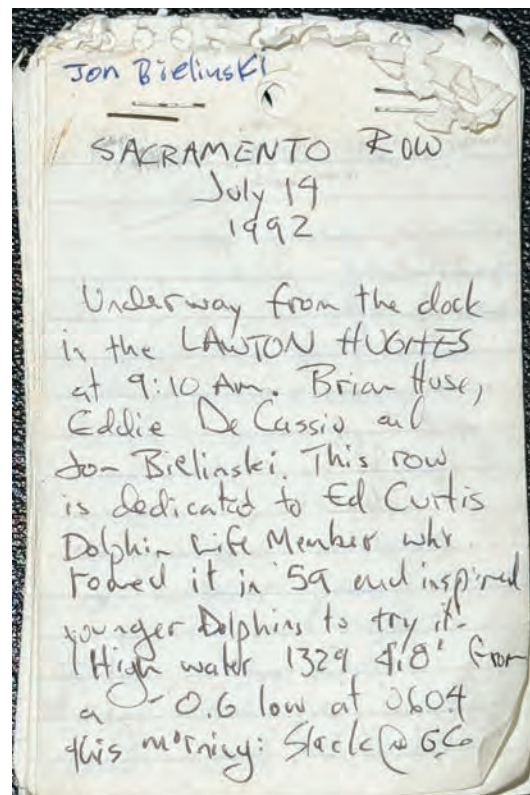 Jon Bielinski
SACRAMENTO ROW
July 14
1992
Underway from the dock
in the LAWTON HUGHES
at 9:10 Am. Brian Huse,
Eddie De Cassio and
Jon Bielinski. This row
is dedicated to Ed Curtis
Dolphin Life Member who
rowed it in '59 and inspired
younger Dolphins to try it.
High water 1329 4.8' from
a -0.6 low at 0604
this morning: Slack @ GG